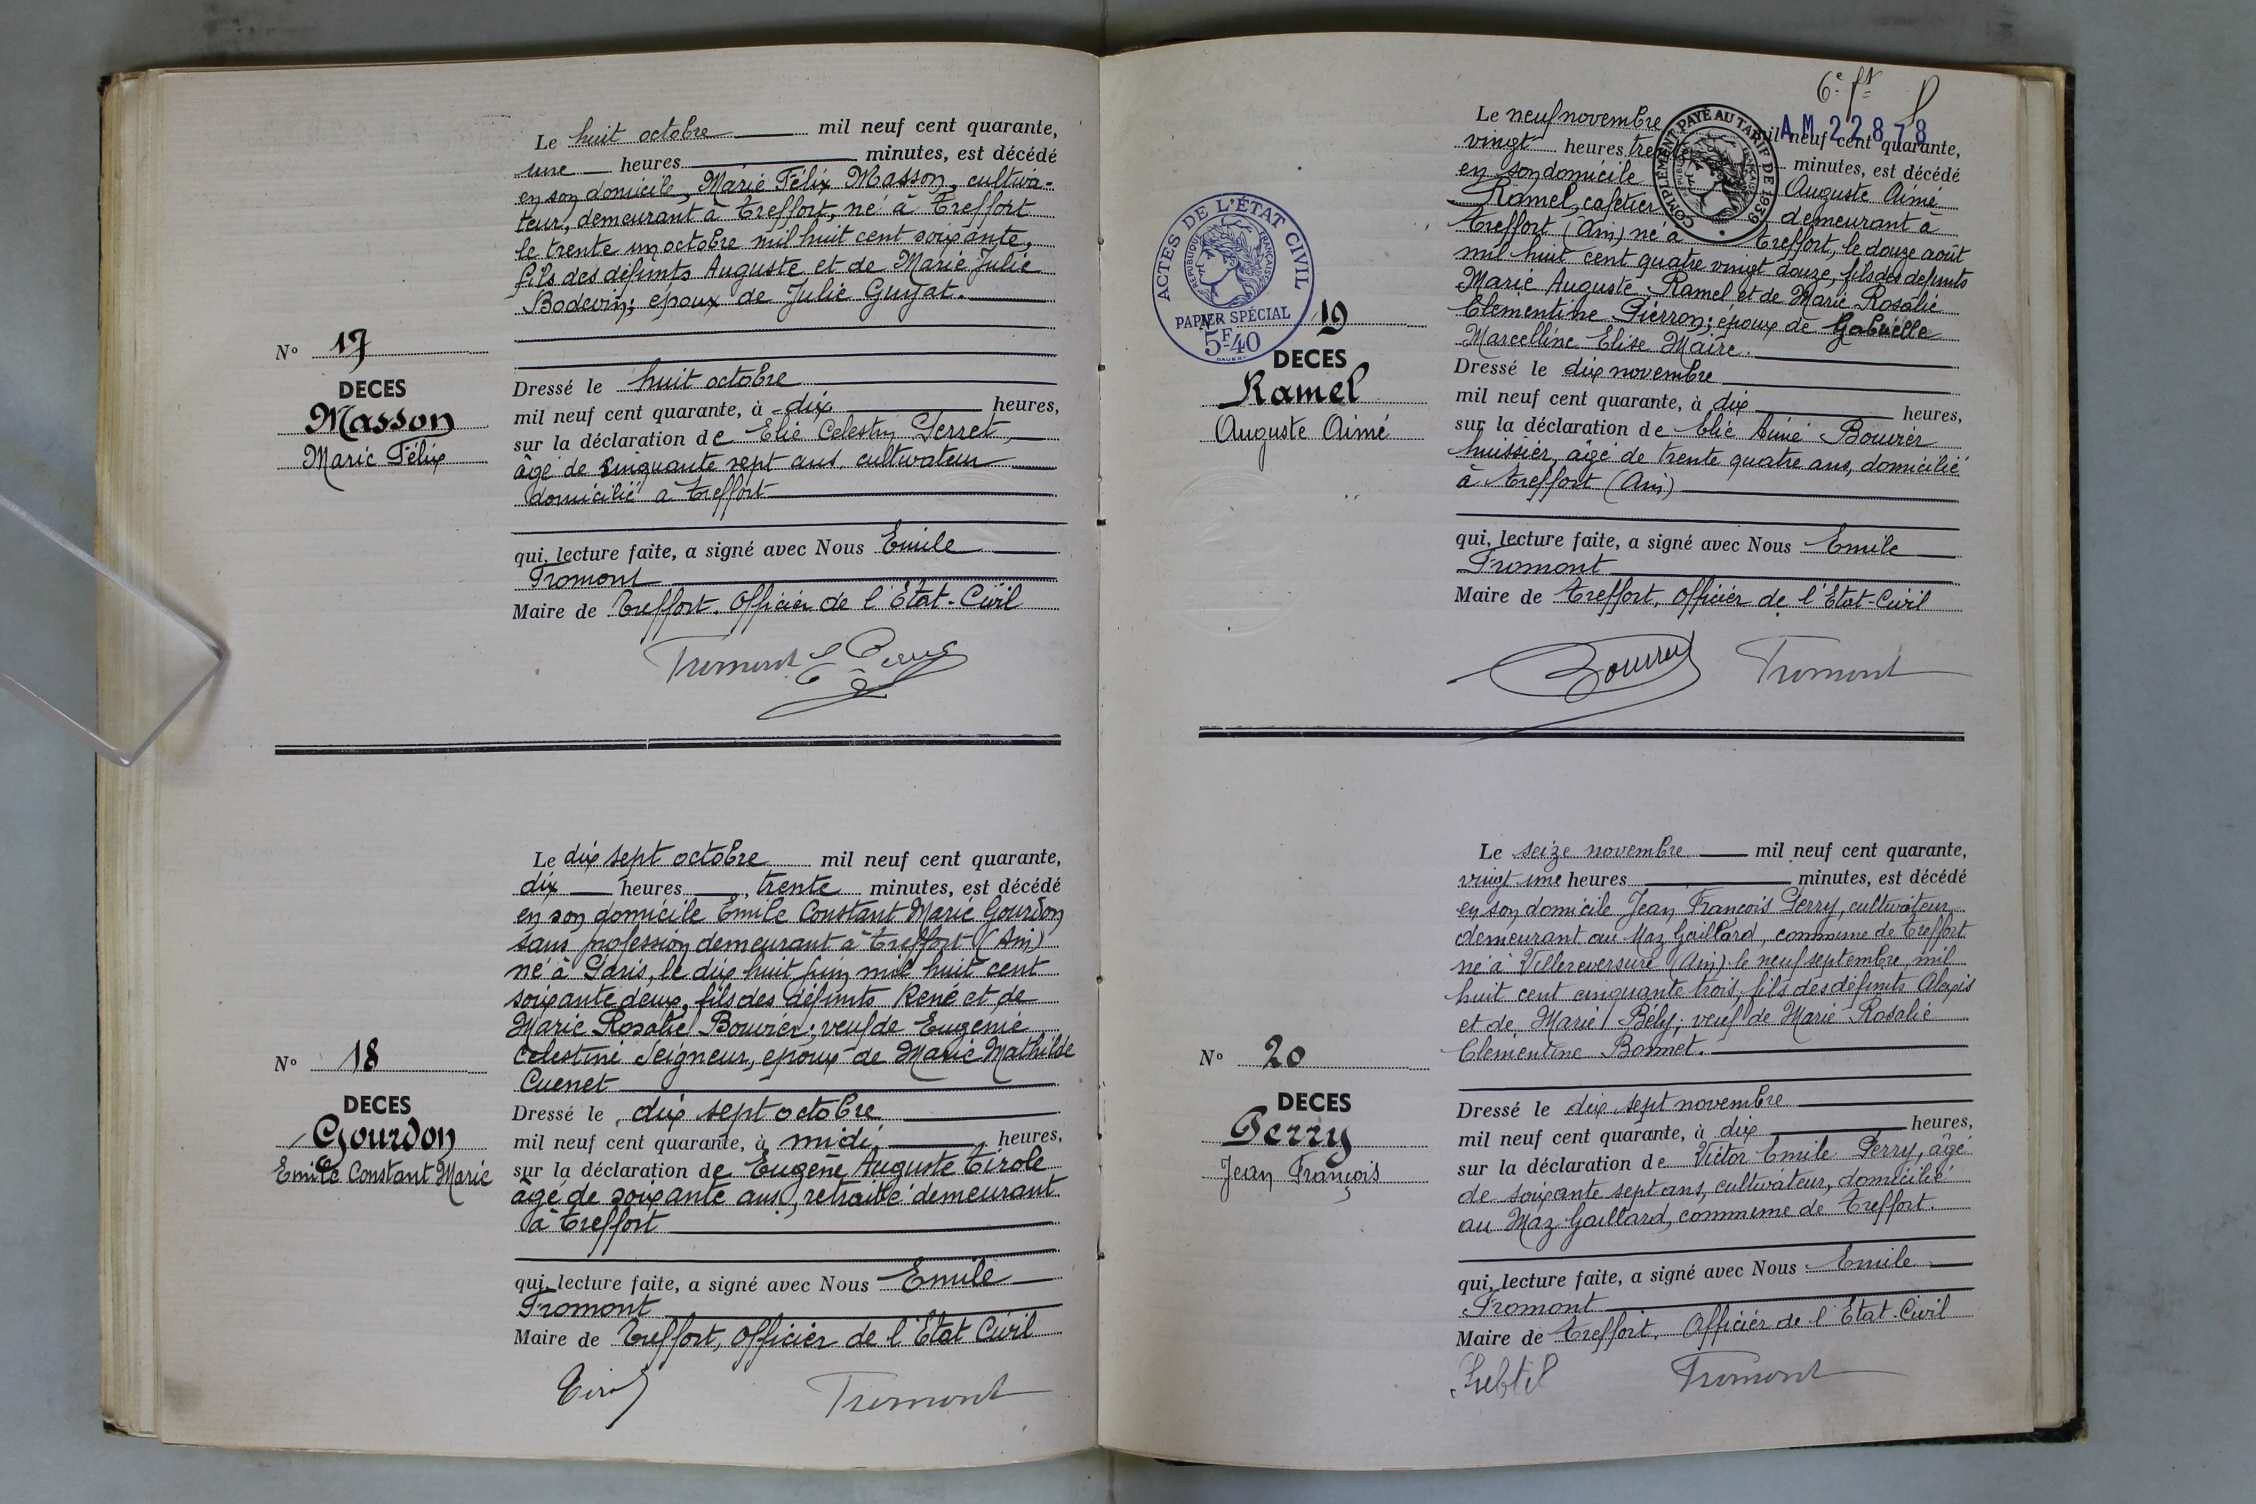 Le huit octobre mil neuf cent quarante,
une heures minutes, est décédé
en son domicile, Marie Félix Masson, cultiva-
teur, demeurant à Treffort, né à Treffort
le trente un octobre mil huit cent soixante,
fils des défunts Auguste et de Marie Julie
Bodevin; époux de Julie Guyat.
N° 17
DECES
Masson
Marie Félix
Dressé le huit octobre
mil neuf cent quarante, à dix heures,
sur la déclaration de Elie Celestin Perret,
âgé de cinquante sept ans, cultivateur
domicilié à Treffort
qui, lecture faite, a signé avec Nous Emile
Fromont
Maire de Treffort, Officier de l'Etat-Civil
Fromont
Le dix sept octobre mil neuf cent quarante,
dix heures, trente minutes, est décédé
en son domicile Emile Constant Marie Gourdon
sans profession demeurant à Treffort (Ain)
né à Paris, le dix huit juin mil huit cent
soixante deux, fils des défunts René et de
Marie Rosalie Bouvier; veuf de Eugenie
Celestine Seigneur, époux de Marie Mathilde
Cuenet
N° 18
DECES
Gourdon
Emile Constant Marie
Dressé le dix sept octobre
mil neuf cent quarante, à midi, heures,
sur la déclaration de Eugène Auguste Tirole
âgé de soixante ans, retraité demeurant
à Treffort
qui, lecture faite, a signé avec Nous Emile
Fromont
Maire de Treffort, Officier de l'Etat Civil
Fromont
AM 22878
COMPLÉMENT PAYÉ AU TARIF DE 1939
Le neuf novembre mil neuf cent quarante,
vingt heures, minutes, est décédé
en son domicile Auguste Aimé
Ramel, cafetier demeurant à
Treffort (Ain) né à Treffort, le douze août
mil huit cent quatre vingt douze, fils des défunts
Marie Auguste Ramel et de Marie Rosalie
Clémentine Pierron; époux de Gabrielle
Marcelline Elise Maire.
ACTES DE L'ÉTAT CIVIL
RÉPUBLIQUE FRANÇAISE
PAPIER SPÉCIAL
5F40
N° 19
DECES
Ramel
Auguste Aimé
Dressé le dix novembre
mil neuf cent quarante, à dix heures,
sur la déclaration de Elie Aimé Bouvier
huissier, âgé de trente quatre ans, domicilié
à Treffort (Ain)
qui, lecture faite, a signé avec Nous Emile
Fromont
Maire de Treffort, Officier de l'Etat-Civil
Bouvier Fromont
Le seize novembre mil neuf cent quarante,
vingt une heures minutes, est décédé
en son domicile Jean François Perry, cultivateur
demeurant au Maz Gaillard, commune de Treffort
né à Villereversure (Ain) le neuf septembre, mil
huit cent cinquante trois, fils des défunts Alexis
et de Marie Bély; veuf de Marie Rosalie
Clémentine Bonnet.
N° 20
DECES
Perry
Jean François
Dressé le dix sept novembre
mil neuf cent quarante, à dix heures,
sur la déclaration de Victor Emile Perry, âgé
de soixante sept ans, cultivateur, domicilié
au Maz Gaillard, commune de Treffort.
qui, lecture faite, a signé avec Nous Emile
Fromont
Maire de Treffort, Officier de l'Etat-Civil
Subtil Fromont